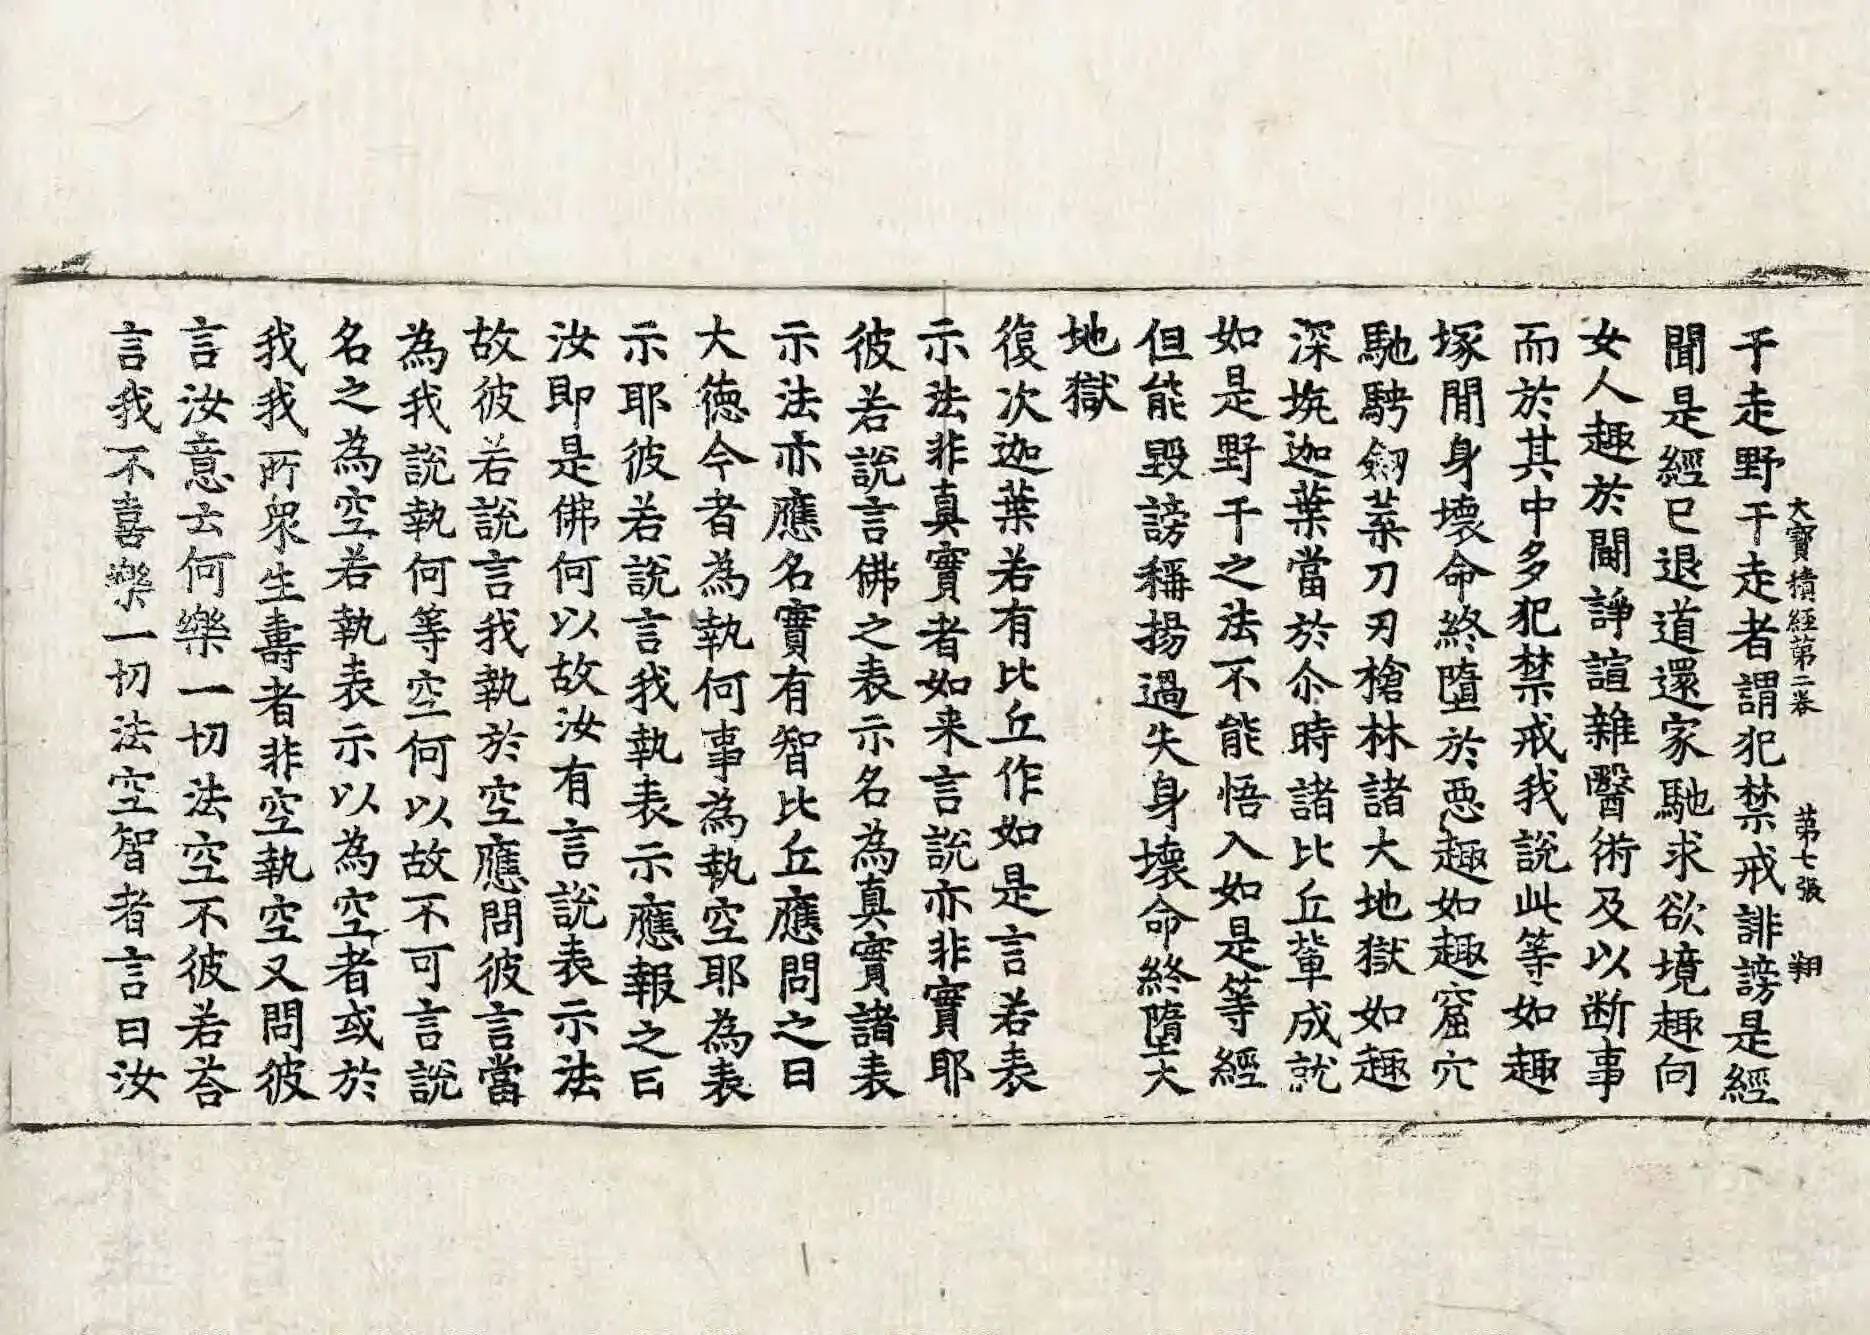 大寶積經第二卷　第七張　翔
干走野干走者謂犯禁戒誹謗是經
聞是經已退道還家馳求欲境趣向
女人趣於鬪諍諠雜醫術及以断事
而於其中多犯禁戒我說此等如趣
塚間身壞命終墮於惡趣如趣窟穴
馳騁劒葉刀刃槍林諸大地獄如趣
深坑迦葉當於尒時諸比丘輩成就
如是野干之法不能悟入如是等經
但能毀謗稱揚過失身壞命終墮大
地獄
復次迦葉若有比丘作如是言若表
示法非真實者如来言說亦非實耶
彼若說言佛之表示名為真實諸表
示法亦應名實有智比丘應問之曰
大德今者為執何事為執空耶為表
示耶彼若說言我執表示應報之曰
汝即是佛何以故汝有言說表示法
故彼若說言我執於空應問彼言當
為我說執何等空何以故不可言說
名之為空若執表示以為空者或於
我我所衆生壽者非空執空又問彼
言汝意云何樂一切法空不彼若荅
言我不喜樂一切法空智者言曰汝